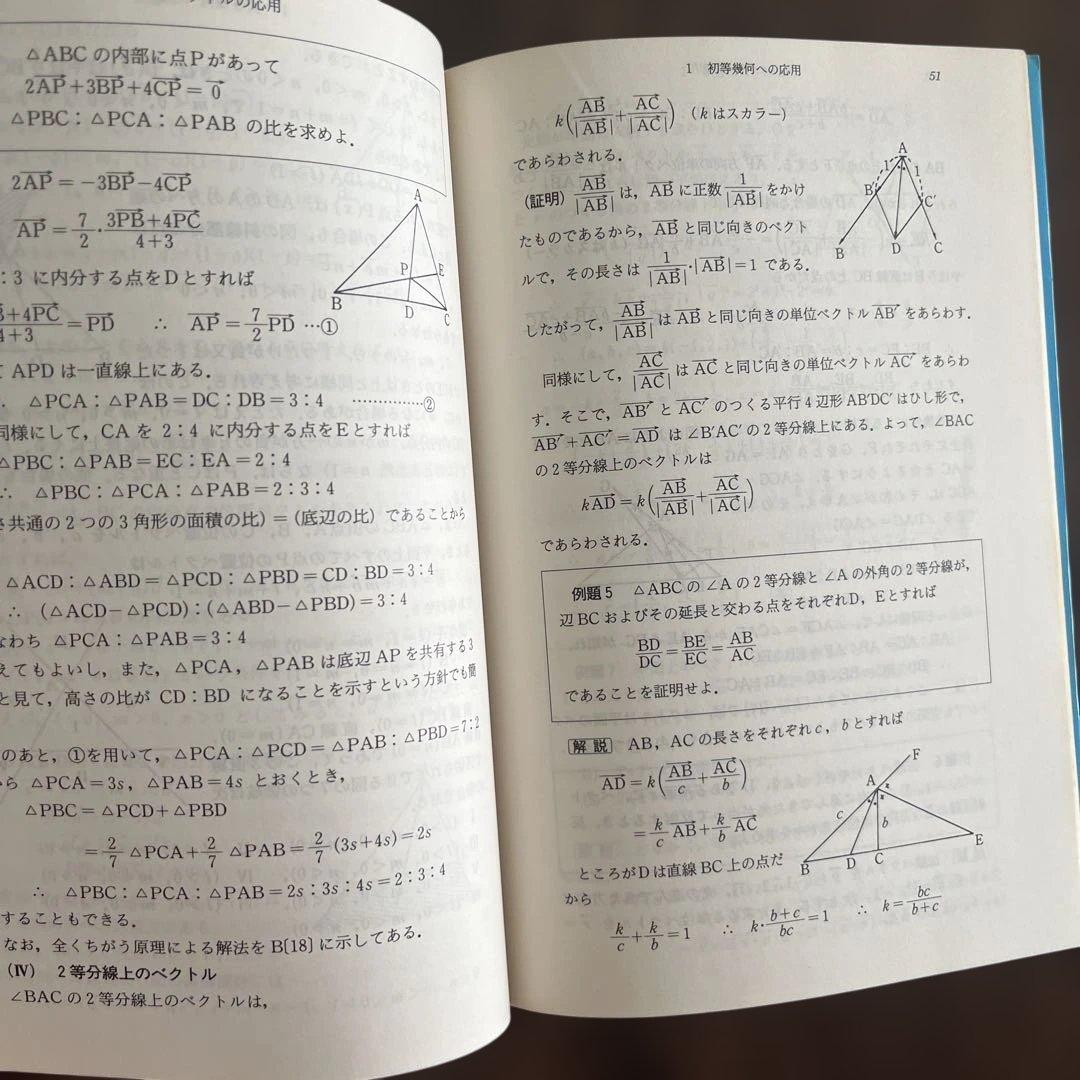 トルの応用
△ABCの内部に点Pがあって
2AP+3BP+4CP=0
△PBC:△PCA:△PABの比を求めよ.
2AP=-3BP-4CP
AP=7/2・(3PB+4PC)/(4+3)
A
P
E
B
D
C
:3に内分する点をDとすれば
+4PC/4+3=PD ∴ AP=7/2 PD …①
APDは一直線上にある.
△PCA:△PAB=DC:DB=3:4 ……………②
同様にして,CAを2:4に内分する点をEとすれば
△PBC:△PAB=EC:EA=2:4
∴ △PBC:△PCA:△PAB=2:3:4
共通の2つの3角形の面積の比)=(底辺の比)であることから
△ACD:△ABD=△PCD:△PBD=CD:BD=3:4
∴ (△ACD-△PCD):(△ABD-△PBD)=3:4
なわち △PCA:△PAB=3:4
えてもよいし,また,△PCA,△PABは底辺APを共有する3
と見て,高さの比がCD:BDになることを示すという方針でも簡
のあと,①を用いて,△PCA:△PCD=△PAB:△PBD=7:2
から △PCA=3s,△PAB=4s とおくとき,
△PBC=△PCD+△PBD
=2/7 △PCA+2/7 △PAB=2/7(3s+4s)=2s
∴ △PBC:△PCA:△PAB=2s:3s:4s=2:3:4
することもできる.
なお,全くちがう原理による解法をB[18]に示してある.
(Ⅳ) 2等分線上のベクトル
∠BACの2等分線上のベクトルは,
1 初等幾何への応用 51
k(AB/|AB|+AC/|AC|) (kはスカラー)
であらわされる.
(証明) AB/|AB| は,ABに正数 1/|AB| をかけ
たものであるから,ABと同じ向きのベクト
ルで,その長さは 1/|AB|・|AB|=1 である.
A
1
1
B′
C′
B
D
C
したがって,AB/|AB| はABと同じ向きの単位ベクトルAB′をあらわす.
同様にして,AC/|AC| はACと同じ向きの単位ベクトルAC′をあらわ
す.そこで,AB′とAC′のつくる平行4辺形AB′DC′はひし形で,
AB′+AC′=AD は∠B′AC′の2等分線上にある.よって,∠BAC
の2等分線上のベクトルは
kAD=k(AB/|AB|+AC/|AC|)
であらわされる.
例題5 △ABCの∠Aの2等分線と∠Aの外角の2等分線が,
辺BCおよびその延長と交わる点をそれぞれD,Eとすれば
BD/DC=BE/EC=AB/AC
であることを証明せよ.
解説 AB,ACの長さをそれぞれc,bとすれば
AD=k(AB/c+AC/b)
=k/c AB+k/b AC
ところがDは直線BC上の点だ
から
k/c+k/b=1 ∴ k・(b+c)/bc=1 ∴ k=bc/(b+c)
F
A
c
b
B
D
C
E